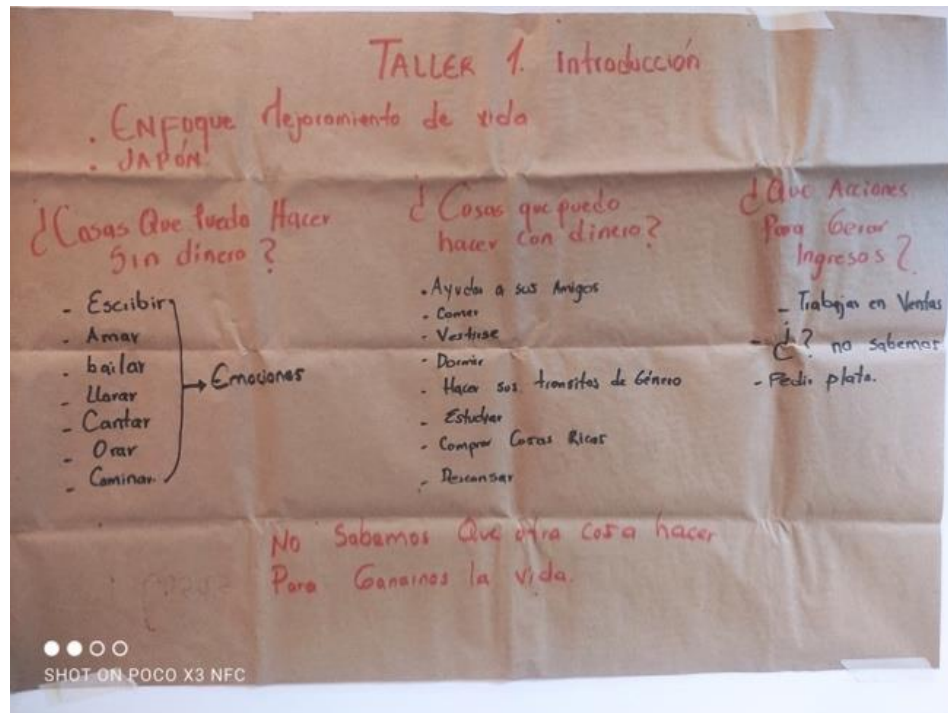 TALLER 1. Introducción
. ENFOQUE Mejoramiento de vida
. JAPÓN.
¿Cosas Que Puedo Hacer
Sin dinero?
- Escribir
- Amar
- bailar
- Llorar
- Cantar
- Orar
- Caminar.
→ Emociones
¿Cosas que puedo
hacer con dinero?
. Ayudar a sus Amigos
- Comer
- Vestirse
- Dormir
- Hacer sus transitos de Género
- Estudiar
- Comprar Cosas Ricas
- Descansar
¿Que Acciones
Para Gerar
Ingresos?
- Trabajar en Ventas
- ¿? no sabemos
- Pedir plata.
No Sabemos Que otra cosa hacer
Para Ganarnos la vida.
SHOT ON POCO X3 NFC